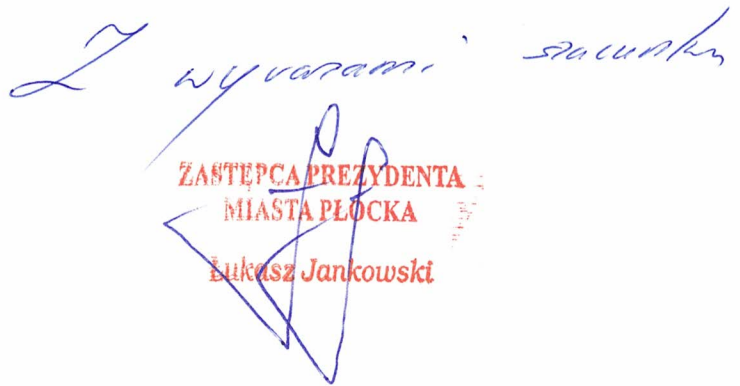 Z wyrazami szacunku
ZASTĘPCA PREZYDENTA
MIASTA PŁOCKA
Łukasz Jankowski